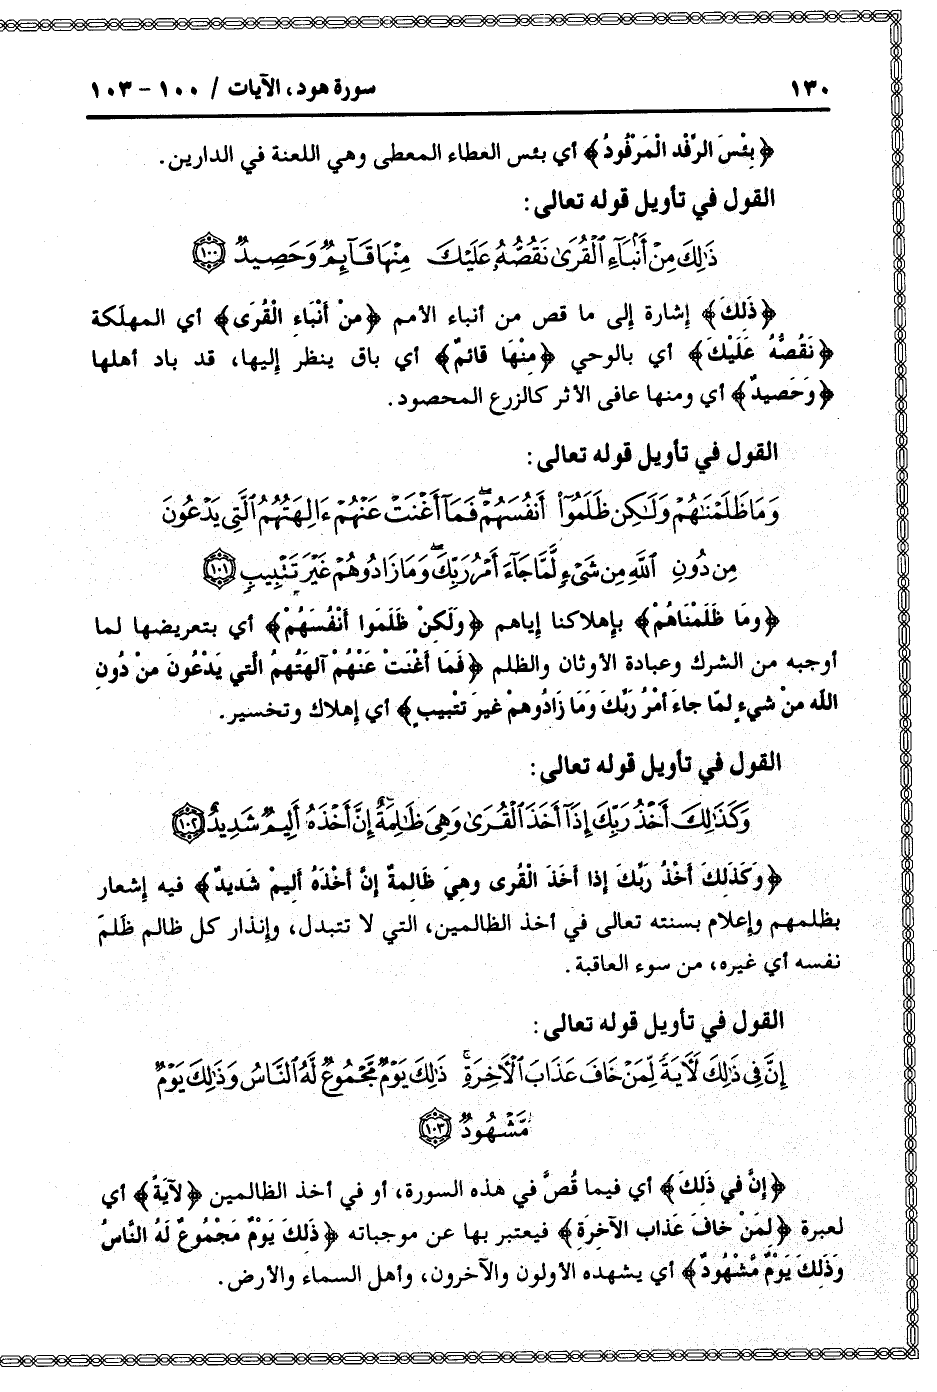 ١٣٠ سورة هود، الآيات / ١٠٠ - ١٠٣
﴿بِئْسَ الرِّفْد الْمَرْفُودُ﴾ أي بئس العطاء المعطى وهي اللعنة في الدارين.
القول في تأويل قوله تعالى:
ذَٰلِكَ مِنْ أَنۢبَآءِ ٱلْقُرَىٰ نَقُصُّهُۥ عَلَيْكَ مِنْهَا قَآئِمٌ وَحَصِيدٌ ١٠٠
﴿ذَلِكَ﴾ إشارة إلى ما قص من أنباء الأمم ﴿مِنْ أَنْبَاءِ الْقُرَى﴾ أي المهلَكة
﴿نَقُصُّهُ عَلَيْكَ﴾ أي بالوحي ﴿مِنْهَا قائمٌ﴾ أي باق ينظر إليها، قد باد أهلها
﴿وَحَصيدٌ﴾ أي ومنها عافى الأثر كالزرع المحصود.
القول في تأويل قوله تعالى:
وَمَا ظَلَمْنَٰهُمْ وَلَٰكِن ظَلَمُوٓا۟ أَنفُسَهُمْ ۖ فَمَآ أَغْنَتْ عَنْهُمْ ءَالِهَتُهُمُ ٱلَّتِى يَدْعُونَ
مِن دُونِ ٱللَّهِ مِن شَىْءٍ لَّمَّا جَآءَ أَمْرُ رَبِّكَ ۖ وَمَا زَادُوهُمْ غَيْرَ تَتْبِيبٍ ١٠١
﴿وَمَا ظَلَمْنَاهُمْ﴾ بإهلاكنا إياهم ﴿وَلَكِنْ ظَلَمَوا أَنْفُسَهُمْ﴾ أي بتعريضها لما
أوجبه من الشرك وعبادة الأوثان والظلم ﴿فَمَا أَغْنَتْ عَنْهُمْ آلهَتُهمُ الَّتي يَدْعُونَ منْ دُونِ
اللَّه منْ شيءٍ لمَّا جاءَ أمْرُ رَبِّكَ وَمَا زَادُوهمْ غيرَ تَتْبيبٍ﴾ أي إهلاك وتخسير.
القول في تأويل قوله تعالى:
وَكَذَٰلِكَ أَخْذُ رَبِّكَ إِذَآ أَخَذَ ٱلْقُرَىٰ وَهِىَ ظَٰلِمَةٌ ۚ إِنَّ أَخْذَهُۥٓ أَلِيمٌ شَدِيدٌ ١٠٢
﴿وَكَذَلِكَ أَخْذُ رَبِّكَ إذَا أَخَذَ الْقُرى وهيَ ظَالِمةٌ إنَّ أَخْذَهُ أَليمٌ شَديدٌ﴾ فيه إشعار
بظلمهم وإعلام بسنته تعالى في أخذ الظالمين، التي لا تتبدل، وإنذار كل ظالم ظَلمَ
نفسه أي غيره، من سوء العاقبة.
القول في تأويل قوله تعالى:
إِنَّ فِى ذَٰلِكَ لَءَايَةً لِّمَنْ خَافَ عَذَابَ ٱلْءَاخِرَةِ ۚ ذَٰلِكَ يَوْمٌ مَّجْمُوعٌ لَّهُ ٱلنَّاسُ وَذَٰلِكَ يَوْمٌ
مَّشْهُودٌ ١٠٣
﴿إنَّ في ذَلِكَ﴾ أي فيما قُصَّ في هذه السورة، أو في أخذ الظالمين ﴿لآيَةً﴾ أي
لعبرة ﴿لِمَنْ خافَ عَذاب الآخرَةِ﴾ فيعتبر بها عن موجباته ﴿ذَلكَ يَوْمٌ مَجْمُوعٌ لَهُ النَّاسُ
وَذَلكَ يَوْمٌ مَّشْهُودٌ﴾ أي يشهده الأولون والآخرون، وأهل السماء والأرض.